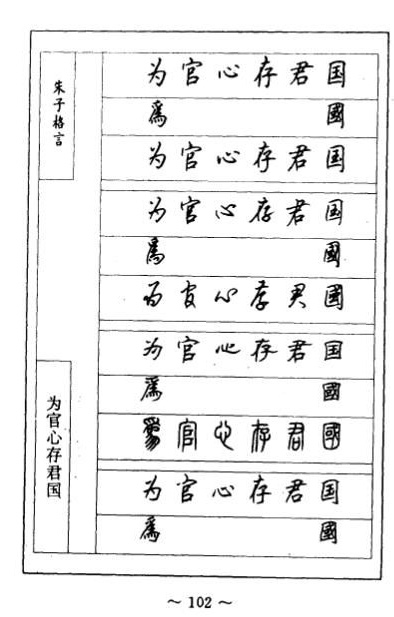 朱子格言
为官心存君国
為 國
为官心存君国
为官心存君国
為 國
为官心存君國
为官心存君国
為 國
為官心存君國
为官心存君国
為 國
为官心存君国
~ 102 ~